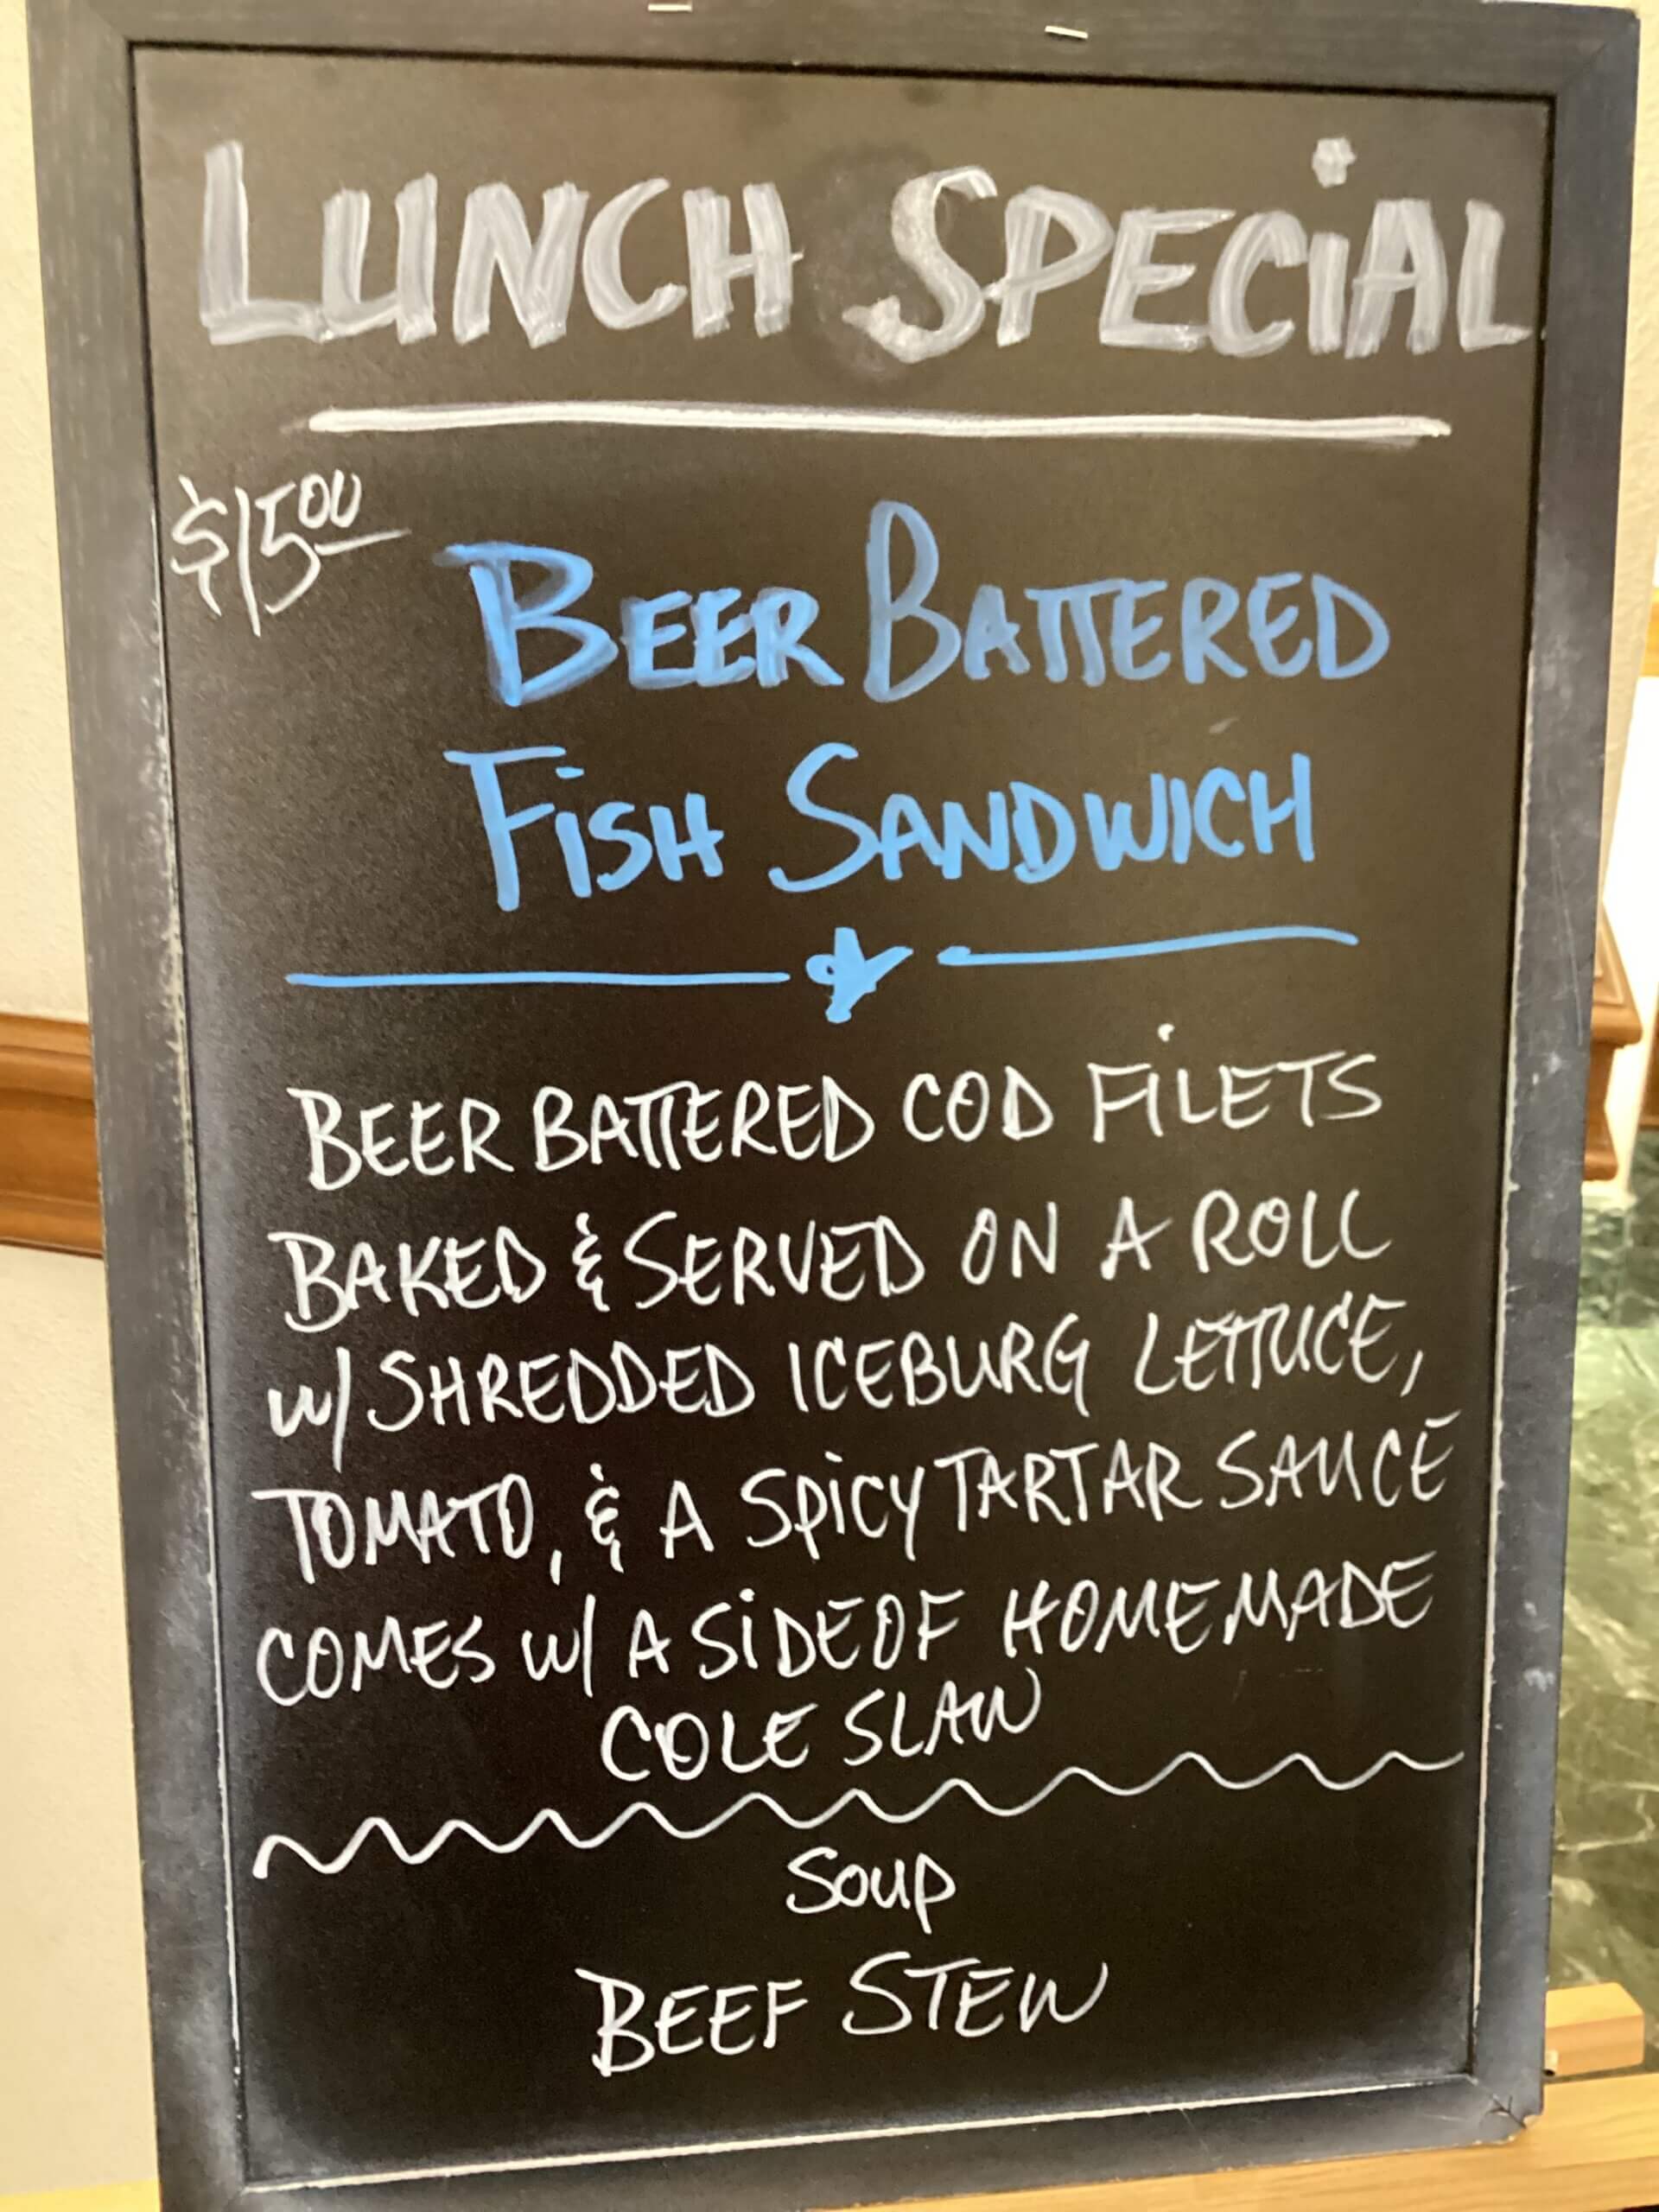 LUNCH SPECiAL
$15.00
BEER BATTERED
FiSH SANDWICH
BEER BATTERED COD FiLETS
BAKED & SERVED ON A ROLL
W/ SHREDDED ICEBURG LETTUCE,
TOMATO, & A SPiCY TARTAR SAUCE
COMES W/ A SiDE OF HOMEMADE
COLE SLAW
SOUP
BEEF STEW